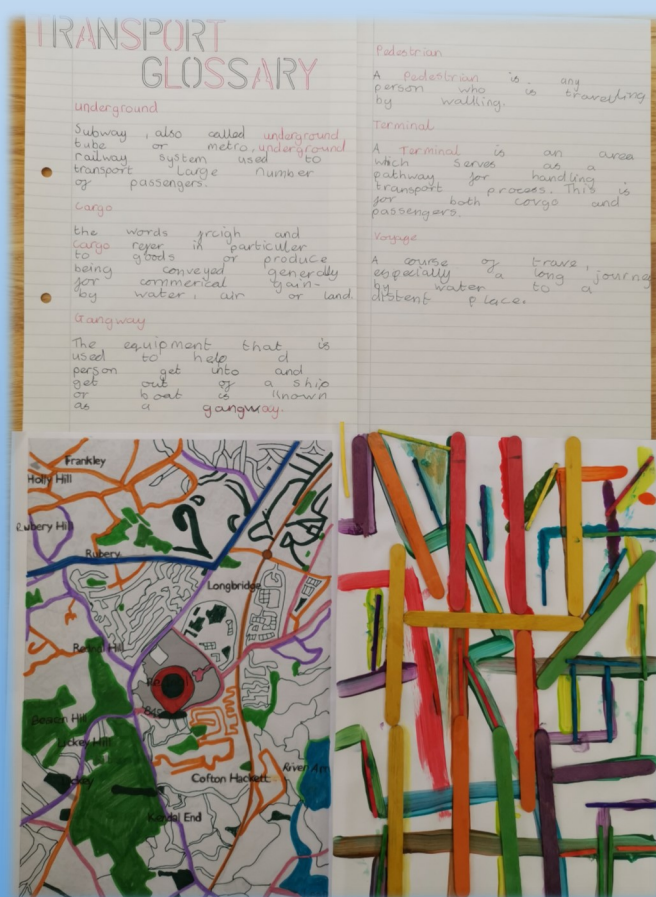 TRANSPORT
GLOSSARY
underground
Subway, also called underground,
tube or metro, underground
railway system used to
transport Large number
of passengers.
Cargo
the words freigh and
Cargo refer in particuler
to goods or produce
being conveyed generally
for commerical gain-
by water, air or land.
Gangway
The equipment that is
used to help d
person get into and
get out of a ship
or boat is known
as a gangway.
Pedestrian
A Pedestrian is any
person who is travelling
by walling.
Terminal
A Terminal is an area
which serves as a
pathway for handling
transport process. This is
for both cargo and
passengers.
Voyage
A course of trave,
especially a long journey
by water to a
distent place.
Frankley
Holly Hill
Rubery Hill
Rubery
Longbridge
Rednal Hill
Beacon Hill
Lickey Hill
Cofton Hackett
River
Kendal End